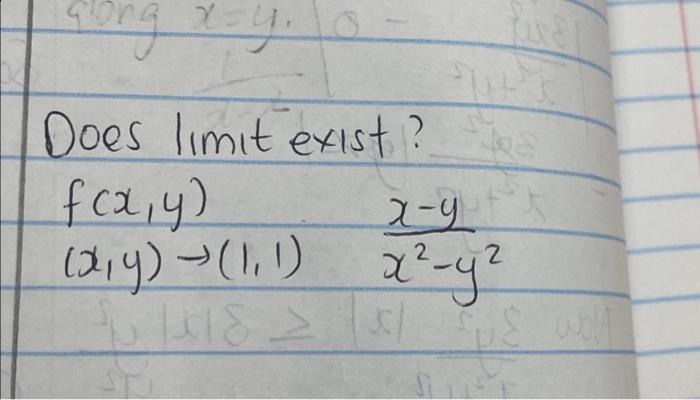 along x=y.
Does limit exist?
f(x,y) x-y
(x,y)→(1,1) x²-y²